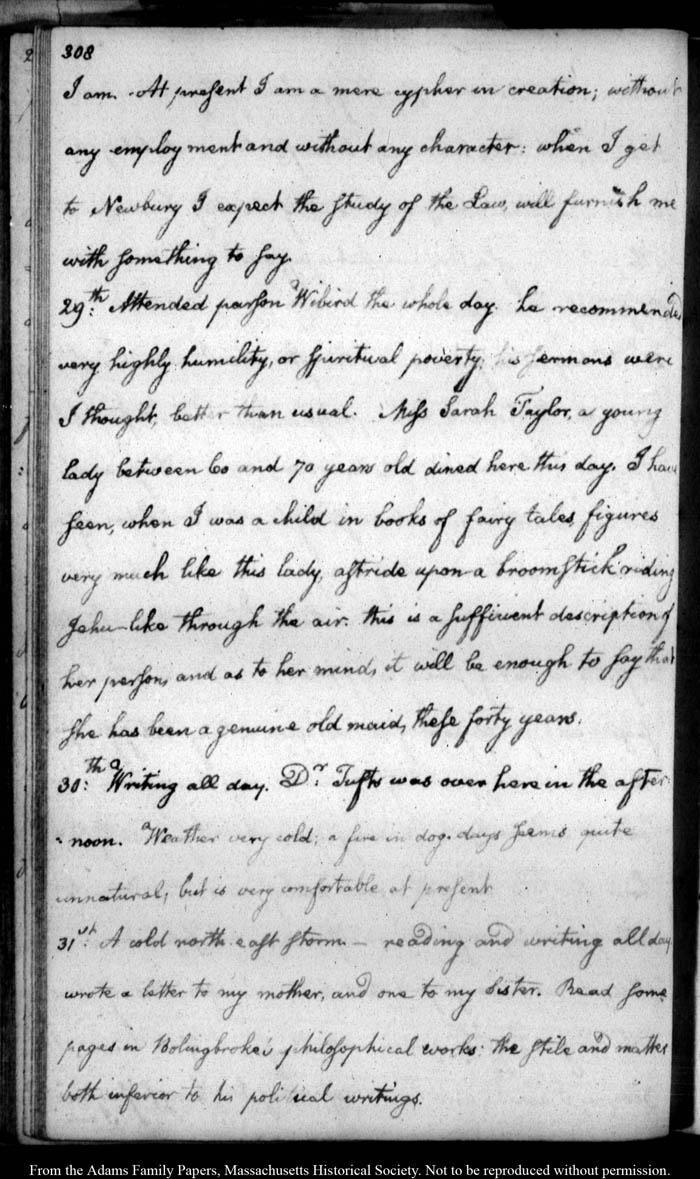 308
I am. At present I am a mere cypher in creation; without
any employment and without any character: when I get
to Newbury I expect the study of the Law, will furnish me
with something to say.
29.th Attended parson Wibird the whole day. he recommended
very highly humility, or spiritual poverty; his sermons were
I thought, better than usual. Miss Sarah Taylor, a young
lady between 60 and 70 years old dined here this day. I have
seen, when I was a child in books of fairy tales, figures
very much like this lady, astride upon a broomstick riding
Jehu-like through the air. this is a sufficient description of
her person, and as to her mind, it will be enough to say that
she has been a genuine old maid, these forty years.
30.th Writing all day. Dr. Tufts was over here in the after-
-noon. Weather very cold; a fire in dog-days seems quite
unnatural; but is very comfortable at present
31.st A cold north-east storm — reading and writing all day
wrote a letter to my mother, and one to my Sister. Read some
pages in Bolingbroke's philosophical works: the stile and matter
both inferior to his political writings.
From the Adams Family Papers, Massachusetts Historical Society. Not to be reproduced without permission.